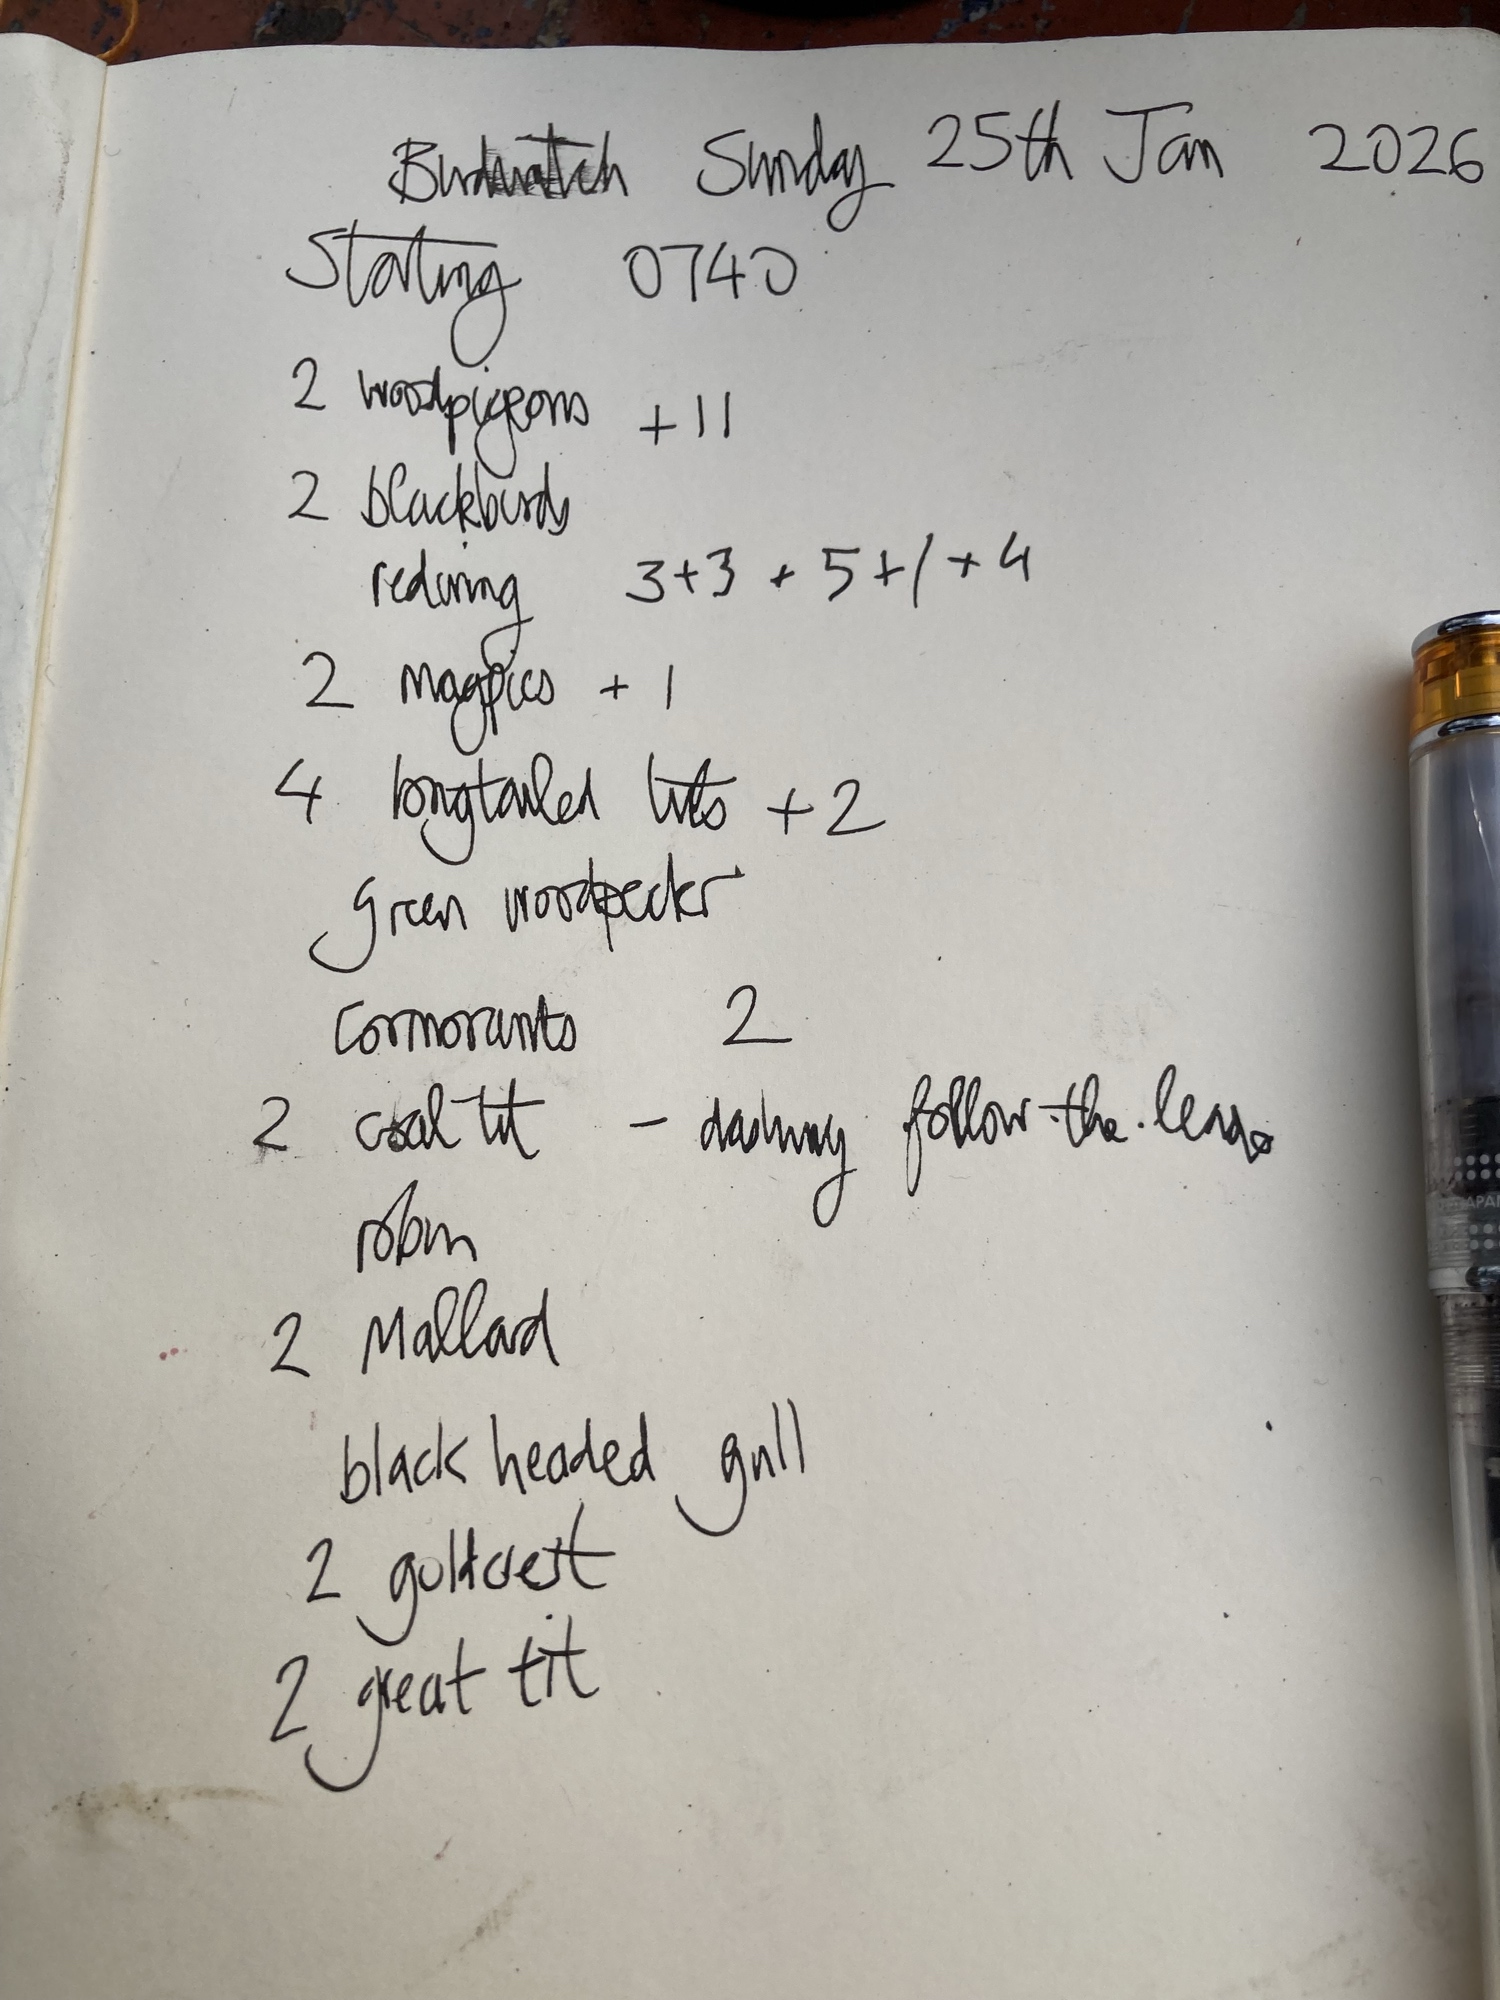 Birdwatch Sunday 25th Jan 2026
Starting 0740
2 woodpigeons +11
2 blackbirds
redwing 3+3 + 5+1+4
2 magpies + 1
4 longtailed tits +2
green woodpecker
Cormorants 2
2 coal tit - dashing follow-the-leader
robin
2 Mallard
black headed gull
2 goldcrest
2 great tit